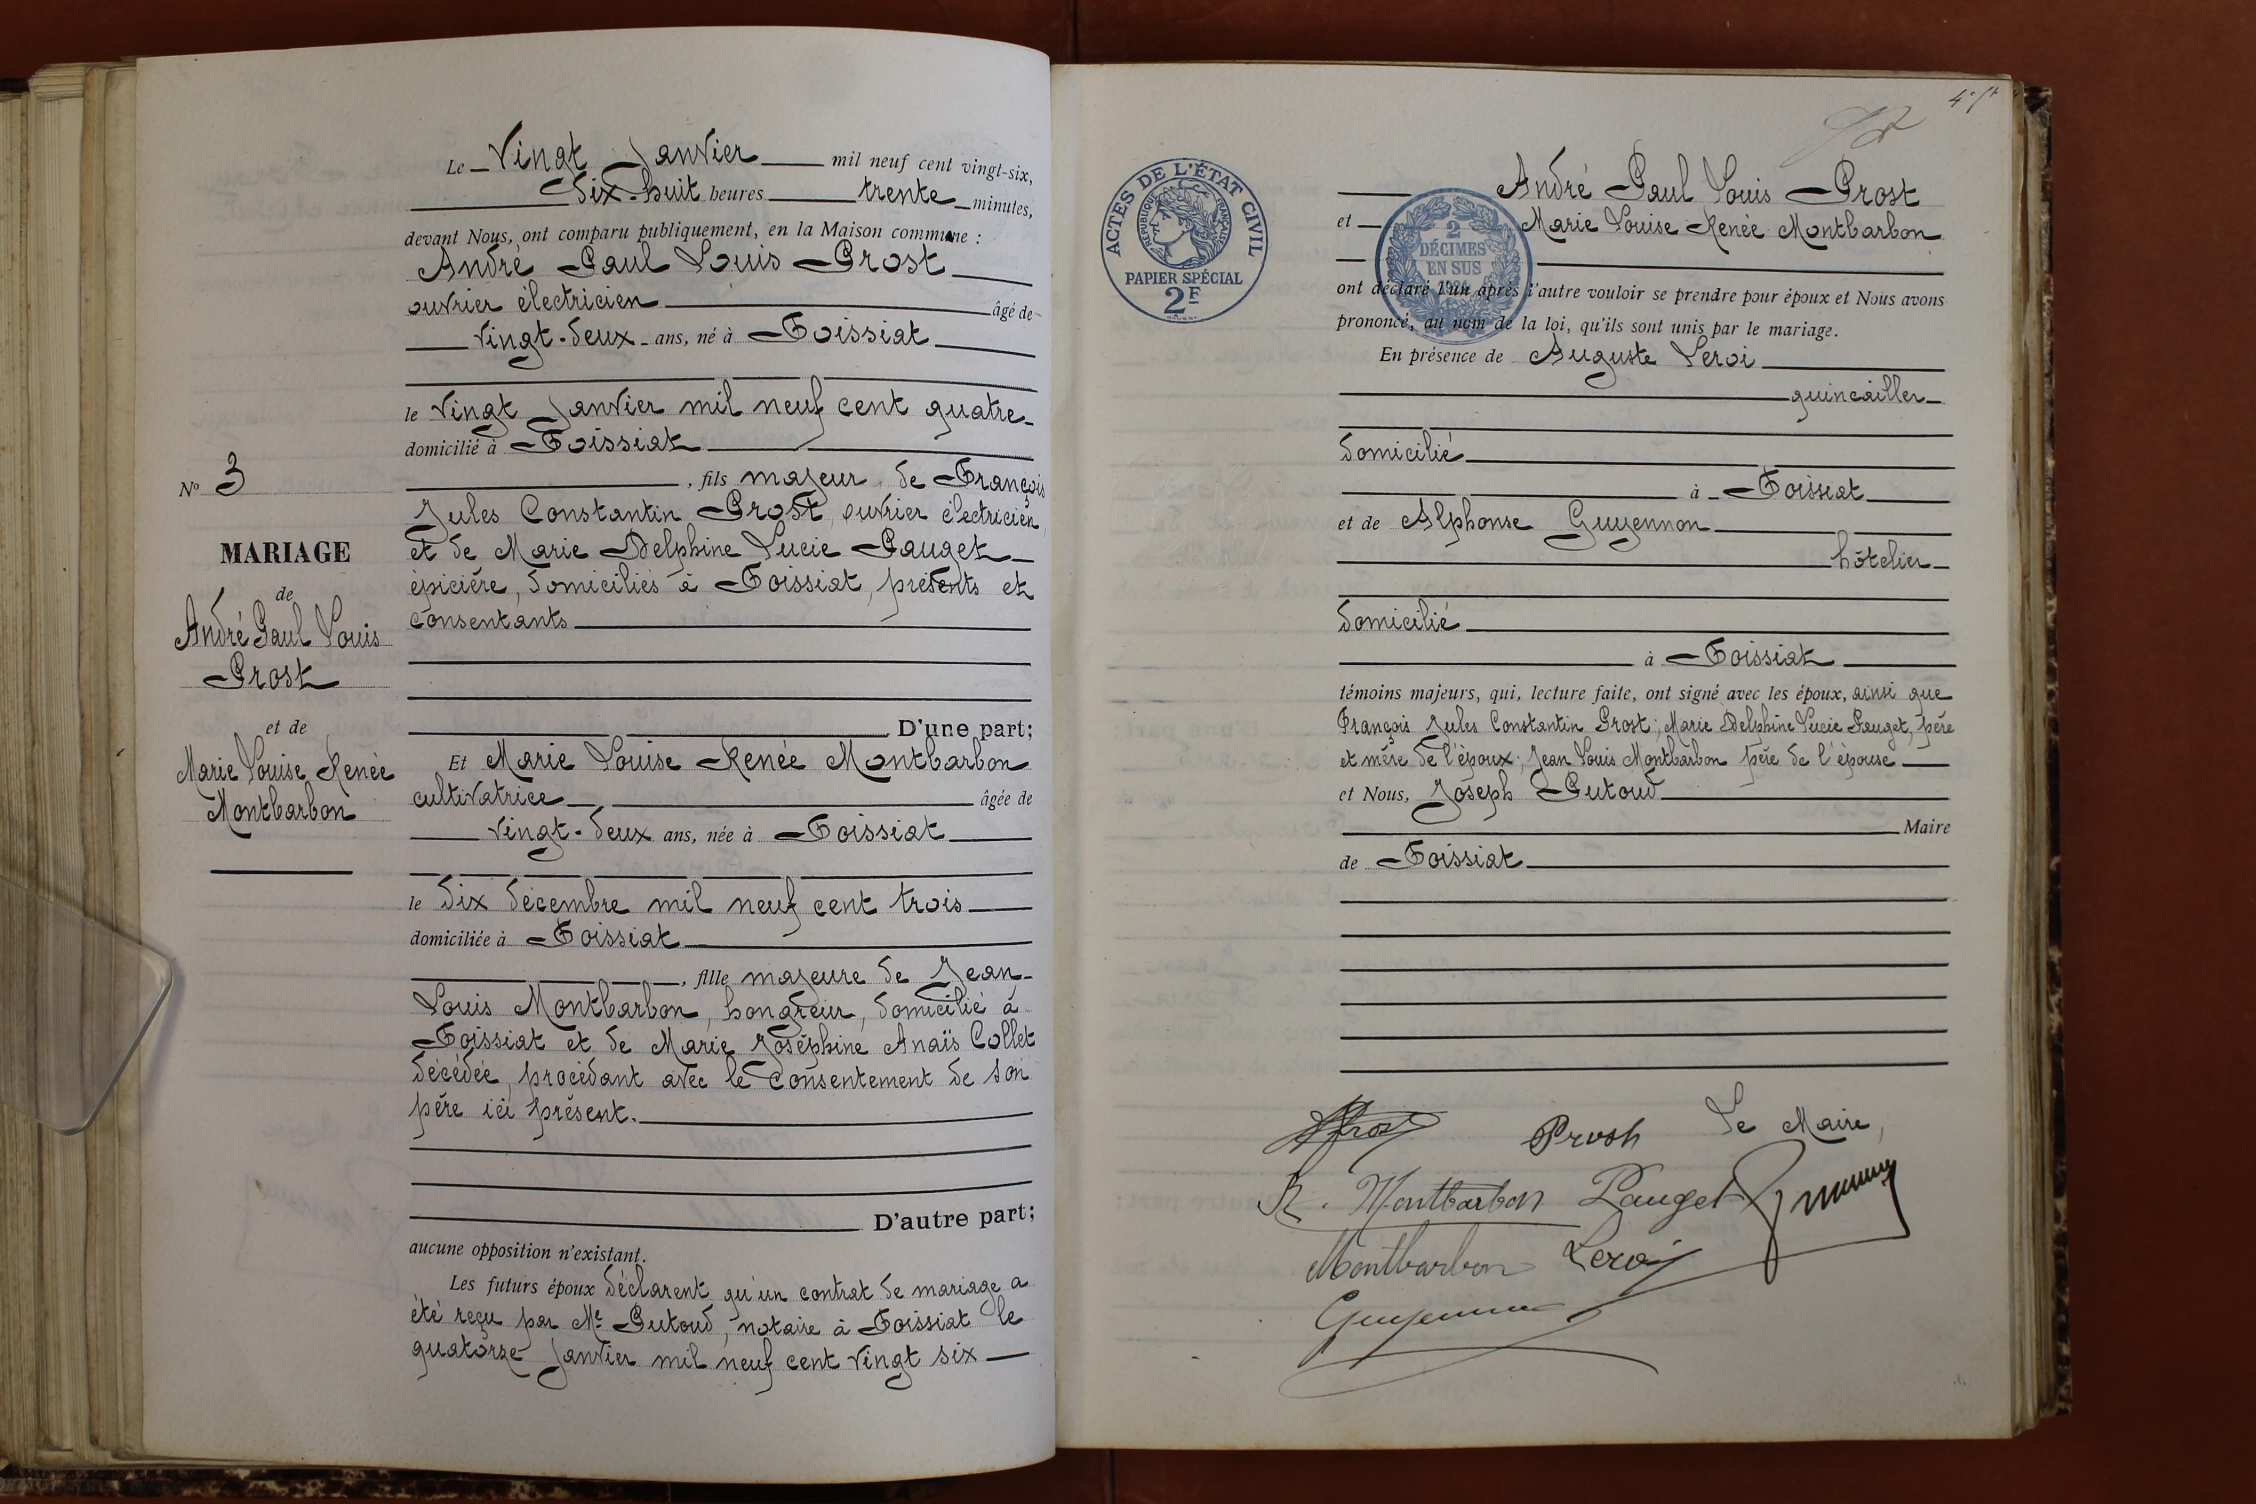 Le Vingt Janvier mil neuf cent vingt-six,
dix-huit heures trente minutes,
devant Nous, ont comparu publiquement, en la Maison commune :
André Paul Louis Prost
ouvrier électricien âgé de
vingt-deux ans, né à Foissiat
le vingt Janvier mil neuf cent quatre
domicilié à Foissiat
, fils majeur de François
Jules Constantin Prost, ouvrier électricien,
et de Marie Delphine Lucie Pauget
épicière, domiciliés à Foissiat, présents et
consentants
D'une part;
Et Marie Louise Renée Montbarbon
cultivatrice âgée de
vingt-deux ans, née à Foissiat
le dix décembre mil neuf cent trois
domiciliée à Foissiat
, fille majeure de Jean-
Louis Montbarbon, hongreur, domicilié à
Foissiat et de Marie Joséphine Anaïs Collet
décédée, procédant avec le consentement de son
père ici présent.
D'autre part;
aucune opposition n'existant.
Les futurs époux déclarent qu'un contrat de mariage a
été reçu par Me Putoud, notaire à Foissiat le
quatorze Janvier mil neuf cent vingt six
No 3
MARIAGE
de
André Paul Louis
Prost
et de
Marie Louise Renée
Montbarbon
ACTES DE L'ÉTAT CIVIL
RÉPUBLIQUE FRANÇAISE
PAPIER SPÉCIAL
2F
2
DÉCIMES
EN SUS
André Paul Louis Prost
et Marie Louise Renée Montbarbon
ont déclaré l'un après l'autre vouloir se prendre pour époux et Nous avons
prononcé, au nom de la loi, qu'ils sont unis par le mariage.
En présence de Auguste Leroi
quincailler
domicilié
à Foissiat
et de Alphonse Guyennon
hôtelier
domicilié
à Foissiat
témoins majeurs, qui, lecture faite, ont signé avec les époux, ainsi que
François Jules Constantin Prost, Marie Delphine Lucie Pauget, père
et mère de l'époux; Jean Louis Montbarbon père de l'épouse
et Nous, Joseph Putoud
Maire
de Foissiat
Prost Prost Le Maire,
R. Montbarbon Pauget
Montbarbon Leroi
Guyennon